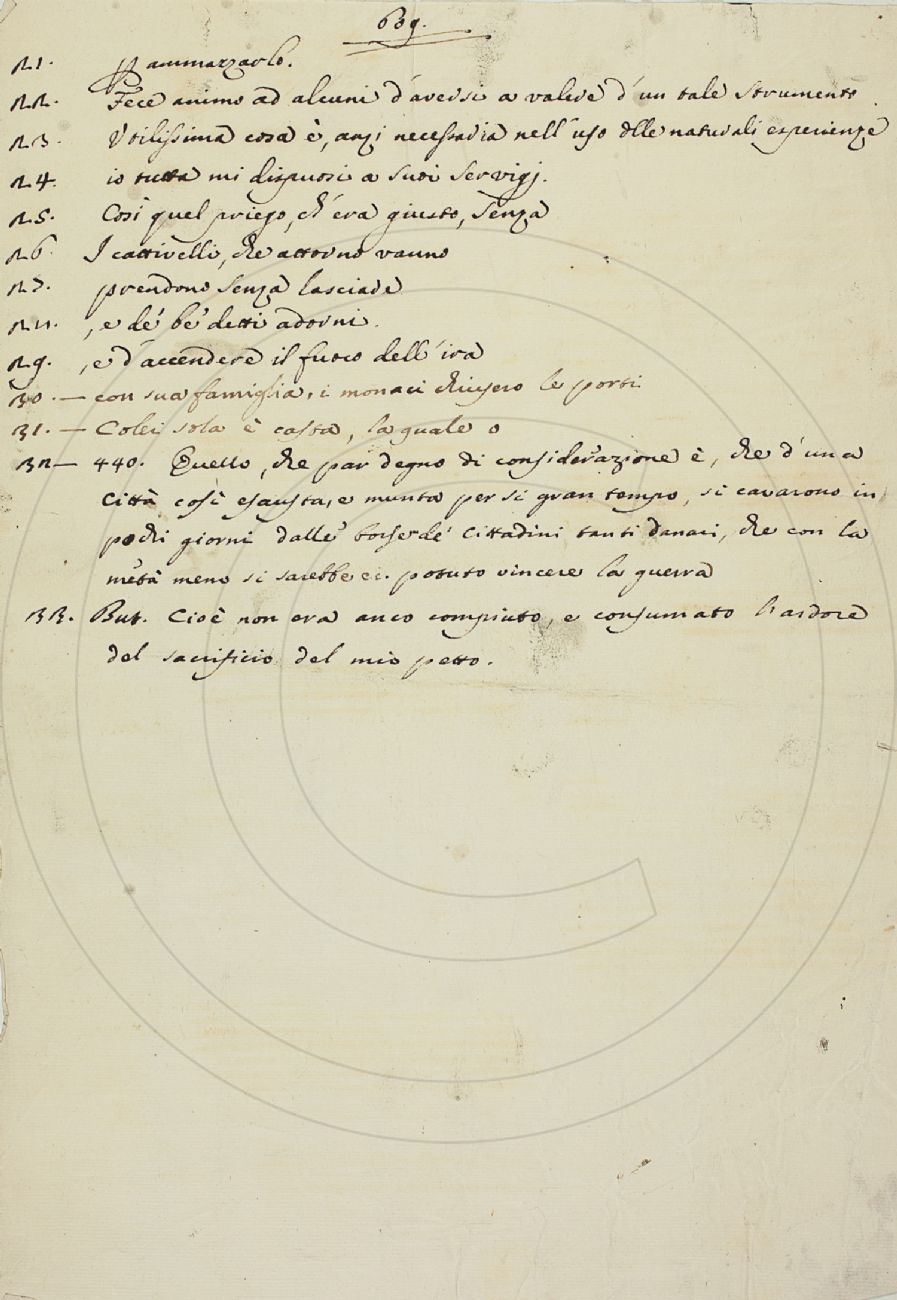 639.
21. p ammazzarlo.
22. Fece animo ad alcuni d'aversi a valere d'un tale strumento.
23. Utilissima cosa è, anzi necessaria nell'uso dlle naturali esperienze
24. io tutta mi disposi a suoi servigj.
25. Così quel priego, ch'era giusto, senza
26. I cattivelli, che attorno vanno
27. prendono senza lasciare
28. , e de' be' detti adorni.
29. , e d'accendere il fuoco dell'ira
30. — con sua famiglia, i monaci chiusero le porti
31. — Colei sola è casta, la quale o
32 — 440. Quello, che par degno di considerazione è, che d'una
Città così esausta, e munta per si gran tempo, si cavarono in
pochi giorni dalle borse de' Cittadini tanti danari, che con la
metà meno si sarebbe ec. potuto vincere la guerra
33. But. Cioè non era anco compiuto, e consumato l'ardore
del sacrificio del mio petto.